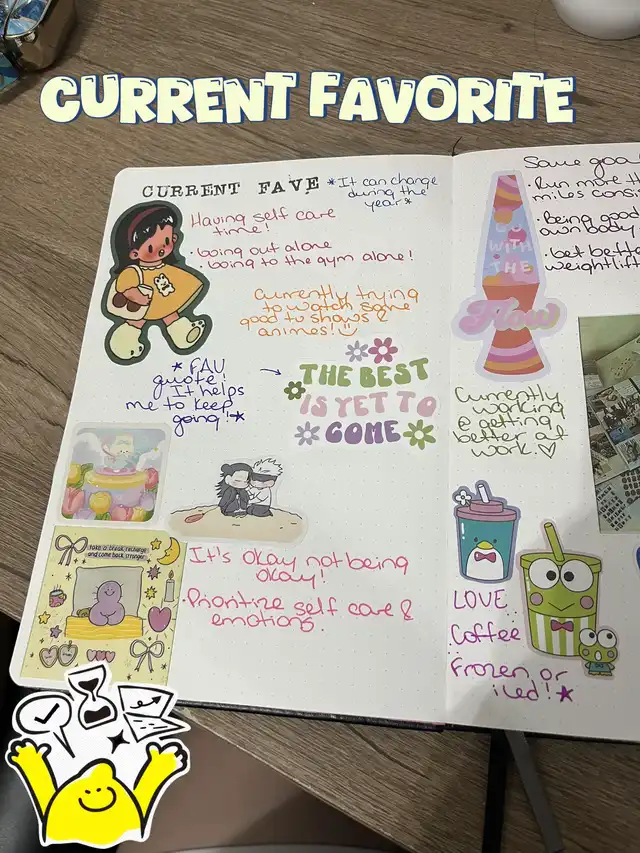 CURRENT FAVORITE
CURRENT FAVE
*It can change
during the
year*
Having self care
time!
· Going out alone
· Going to the gym alone!
Currently trying
to watch some
good tv shows &
animes!
* FAV
quote!
It helps
me to keep
going! *
THE BEST
IS YET TO
COME
take a break, recharge
and come back stronger
It's okay not being
okay!
· Prioritize self care &
emotions.
Some goa
· Run more th
miles consi
· Being good
own body
· Get bette
weightlift
GO
WITH
THE
Flow
Currently
working
@ getting
better at
work. ♡
LOVE
Coffee
Frozen or
iced! *